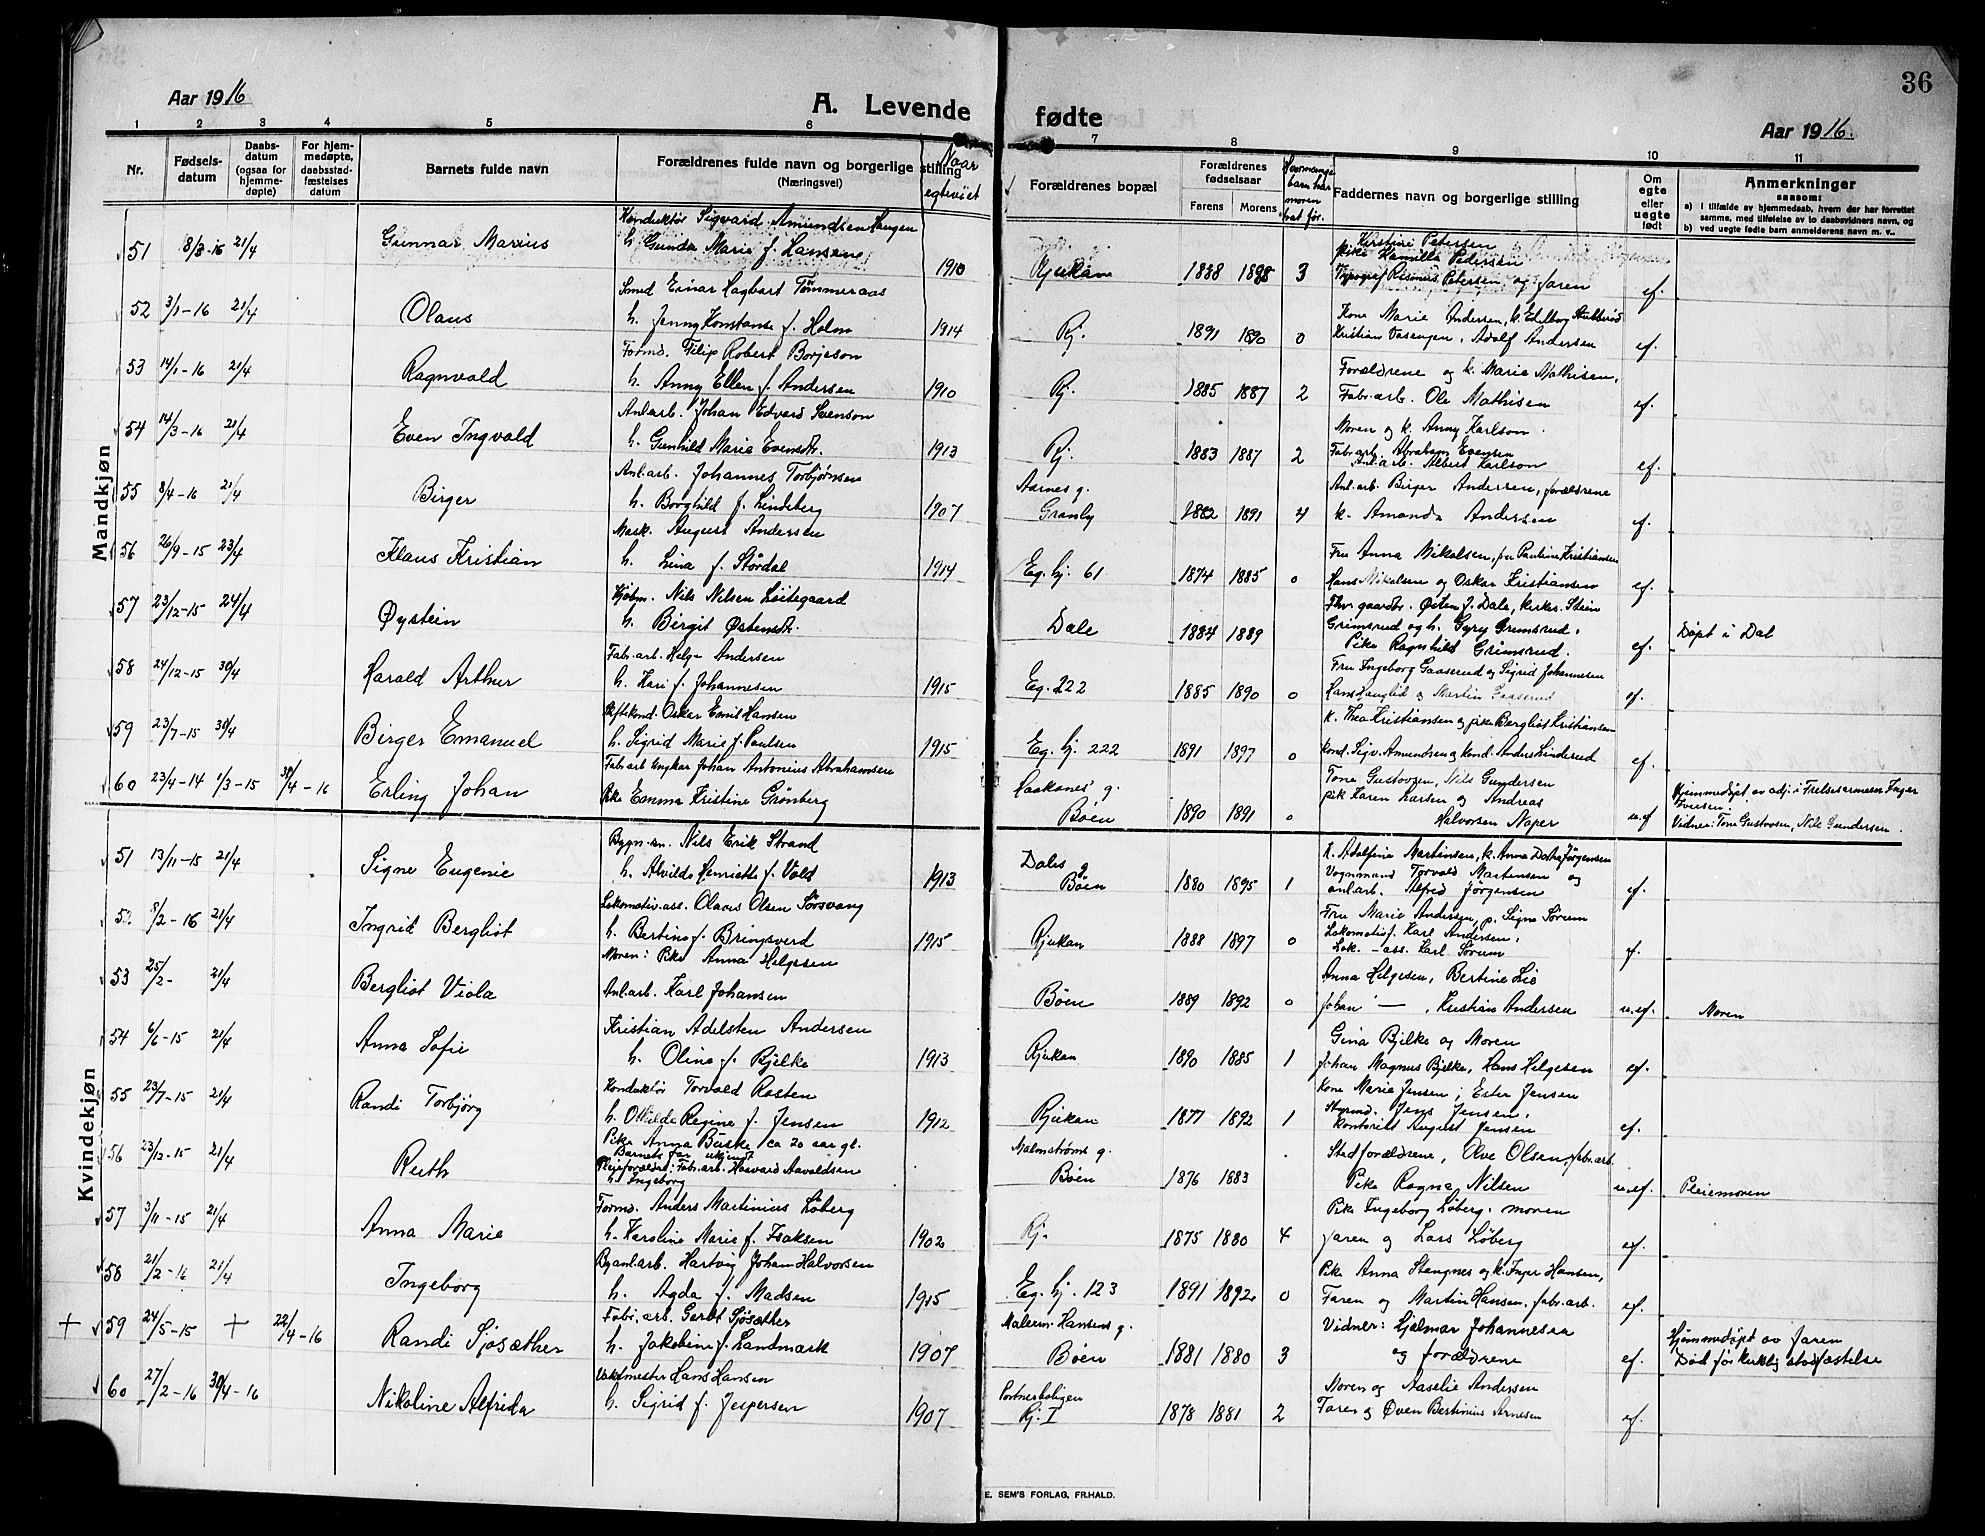 36
Aar 1916
A. Levende fødte
Aar 1916.
1 2 3 4 5 6 7 8 9 10 11
Nr.
Fødselsdatum
Daabsdatum (ogsaa for hjemmedøpte)
For hjemmedøpte, daabsstadfæstelses datum
Barnets fulde navn
Forældrenes fulde navn og borgerlige stilling
(Næringsvei)
Naar egteviet
Forældrenes bopæl
Forældrenes fødselsaar
Farens Morens
Hvormange barn har moren hat før.
Faddernes navn og borgerlige stilling
Om egte eller uegte født
Anmerkninger
saasom:
a) i tilfælde av hjemmedaab, hvem der har forrettet samme, med tilføielse av to daabsvidners navn, og
b) ved uegte fødte barn anmelderens navn m. v..
Mandkjøn
51 8/3-16 21/4 Gunnar Marius
Konduktør Sigvard Amundsen Haugen
h. Gunda Marie f. Hansen 1910
Rjukan 1888 1888 3
Kirstine Petersen
pike Kamilla Pedersen
Typograf Rasmus Petersen og faren ef.
52 3/1-16 21/4 Olaus
Smed Einar Hagbart Tømmeraas
h. Jenny Konstanse f. Holm 1914
Rj. 1891 1890 0
Kone Marie Andersen, k. Edelborg Stubberød
Kristian Vasengen, Adolf Andersen ef.
53 14/1-16 21/4 Ragnvald
Formd. Filip Robert Borjeson
h. Anny Ellen f. Andersen 1910
Rj. 1885 1887 2
Forældrene og k. Marie Mathisen,
Fabr.arb. Ole Mathisen ef.
54 14/3-16 21/4 Even Ingvald
Anl.arb. Johan Edvard Svenson
h. Gunhild Marie Evensdtr. 1913
Rj. 1883 1887 2
Moren og k. Anny Karlson.
Fabr.arb. Abraham Evensen
Anl.arb. Albert Karlson ef.
55 8/4-16 21/4 Birger
Anl.arb. Johannes Torbjørnsen
h. Borghild f. Lindeberg 1907
Aarnes g.
Granly 1882 1891 4
Anl.arb. Birger Andersen, forældrene
k. Amanda Andersen ef.
56 26/9-15 23/4 Klaus Kristian
Mask. August Andersen
h. Lina f. Stördal 1914
Eg. hj. 61 1874 1885 0
Fru Anna Nikolsen, fru Pauline Kristiansen
Hans Nikolsen og Oskar Kristiansen ef.
57 23/12-15 24/4 Øystein
Kjøbm. Nils Nilsen Loitegaard
h. Birgit Østensdtr.
Dale 1884 1889
Fhv. gaardbr. Østen J. Dale, kirkes. Stein
Grimsrud og h. Gyry Grimsrud.
Pike Ragnhild Grimsrud. ef. Døpt i Dal
58 24/12-15 30/4 Harald Arthur
Fabr.arb. Helge Andersen
h. Kari f. Johannesen 1915
Eg. 222 1885 1890 0
Fru Ingeborg Gaaserud og Sigrid Johannesen
Hans Hauglid og Martin Gaaserud ef.
59 23/7-15 30/4 Birger Emanuel
Skiftekond. Oskar Emil Hansen
h. Sigrid Marie f. Paulsen 1915
Eg. hj. 222 1891 1897 0
k. Thea Kristiansen og pike Bergliot Kristiansen
Kond. Sigv. Amundsen og kond. Anders Linderud ef.
60 23/4-14 1/3-15 30/4-16 Erling Johan
Fab.arb. ungkar Johan Antonius Abrahamsen
Pike Emma Kristine Grønberg
Haakanes g.
Bøen 1890 1891 0
Tone Gustovsen, Nils Gundersen
pik Karen Larsen og Andreas
Halvorsen Naper u.ef
Hjemmedøpt av adj. i Frelsesarmeen Inger
Iversen.
Vidner: Tone Gustovsen, Nils Gundersen.
Kvindekjøn
51 13/11-15 21/4 Signe Eugenie
Bygn.sn. Nils Erik Strand
h. Alvilde Henriette f. Vold 1913
Dales g
Bøen 1880 1895 1
K. Adolfine Martinsen, k. Anna Jørgensen
Vognmand Torvald Martensen og
anl.arb. Alfred Jørgensen ef.
52 8/2-16 21/4 Ingrid Bergliot
Lokomotiv.ass. Olaus Olsen Sørsvang
h. Bertine f. Bringsverd 1915
Rjukan 1888 1897 0
Fru Marie Andersen, p. Signe Sørum
Lokomotivf. Karl Andersen,
Lok.-ass. Karl Sørum ef.
53 25/2- 21/4 Bergliot Viola
Moren: Pike Anna Helgesen
Anl.arb. Karl Johansen
Bøen 1889 1892 0
Anna Helgesen, Bertine Lie
Johan —, Kristian Andersen u.ef. Moren
54 6/6-15 21/4 Anna Sofie
Kristian Adelsten Andersen
h. Oline f. Bjelke 1913
Rjukan 1890 1885 1
Gina Bjelke og Moren
Johan Magnus Bjelke, Hans Helgesen ef.
55 23/7-15 21/4 Randi Torbjørg
Konduktør Torvald Rosten
h. Othilde Regine f. Jensen 1912
Rjukan 1877 1892 1
Kone Marie Jensen, Ester Jensen
Styrmd. Jens Jensen,
Kontorist August Jensen ef.
56 23/12-15 21/4 Ruth
Pike Anna Buske ca 20 aar gl.
Barnets far ukjendt
Pleieforældre: Fabr.arb. Havard Aavaldsen
h. Ingeborg
Malmstrøms g.
Bøen 1876 1883
Stedforældrene, Olve Olsen, fabr.arb.
Pike Ragna Nilsen u.ef. Pleiemoren
57 3/11-15 21/4 Anna Marie
Formd. Anders Martinius Løberg
h. Karoline Marie f. Isaksen 1902
Rj. 1875 1880 4
Pike Ingeborg Løberg, moren
faren og Lars Løberg ef.
58 21/2-16 21/4 Ingeborg
Byanl.arb. Hartvig Johan Halvorsen
h. Agda f. Madsen 1915
Eg. hj. 123 1891 1892 0
Pike Anna Stangnes og k. Inger Hansen,
Faren og Martin Hansen, fabr.arb. ef.
+ 59 24/5-15 + 22/4-16 Randi Sjosæther
Fabr.arb. Gerdt Sjøsæther
h. Jakobine f. Landmark 1907
Malerm. Hansens g.
Bøen 1881 1880 3
Vidner: Hjalmar Johannesen
og forældrene ef.
Hjemmedøpt av faren
Død før kirkelig stadfæstelse
60 27/2-16 30/4-16 Nikoline Alfrida
Vaktmester Hans Hansen
h. Sigrid f. Jespersen 1907
Portnerboligen
Rj. I 1878 1881 2
Moren og Aaselie Andersen
Faren og Øven Bertinius Arnesen ef.
E. SEM'S FORLAG, FR.HALD.